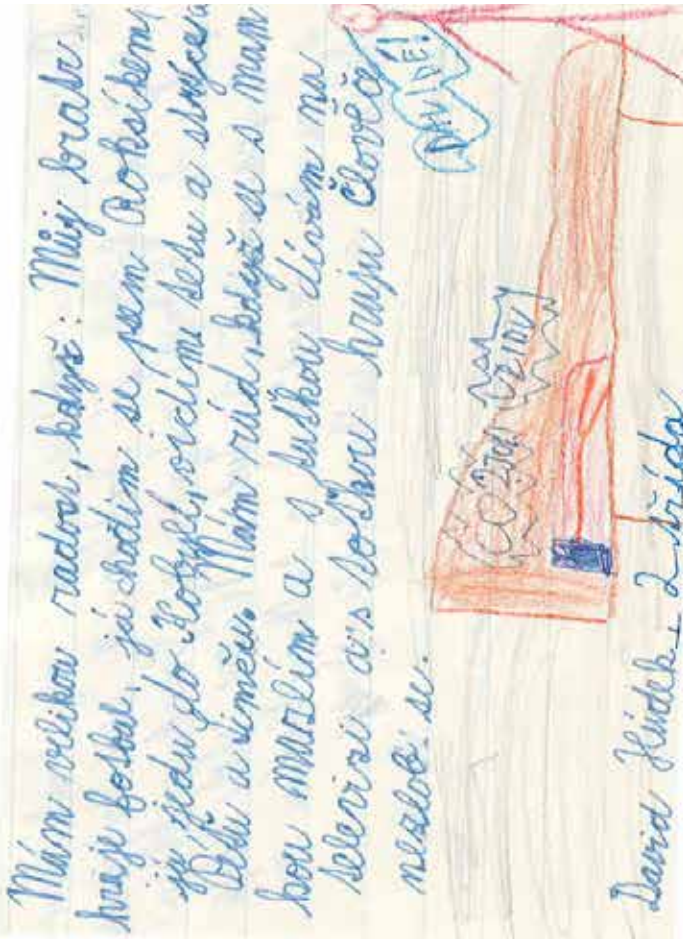 Mám velikou radost, když: Můj bratr
hraje fotbal, já chodím se psem Roksíkem,
já jedu do Kobylí, vidím tetu a strýce a
a Siměu. Mám rád, když se s mam
kou mazlím a s puškou dívám na
televizi a s taťkou hraju Člověče
nezlob se.
DAVIDE!
David Hudek, 2 třída